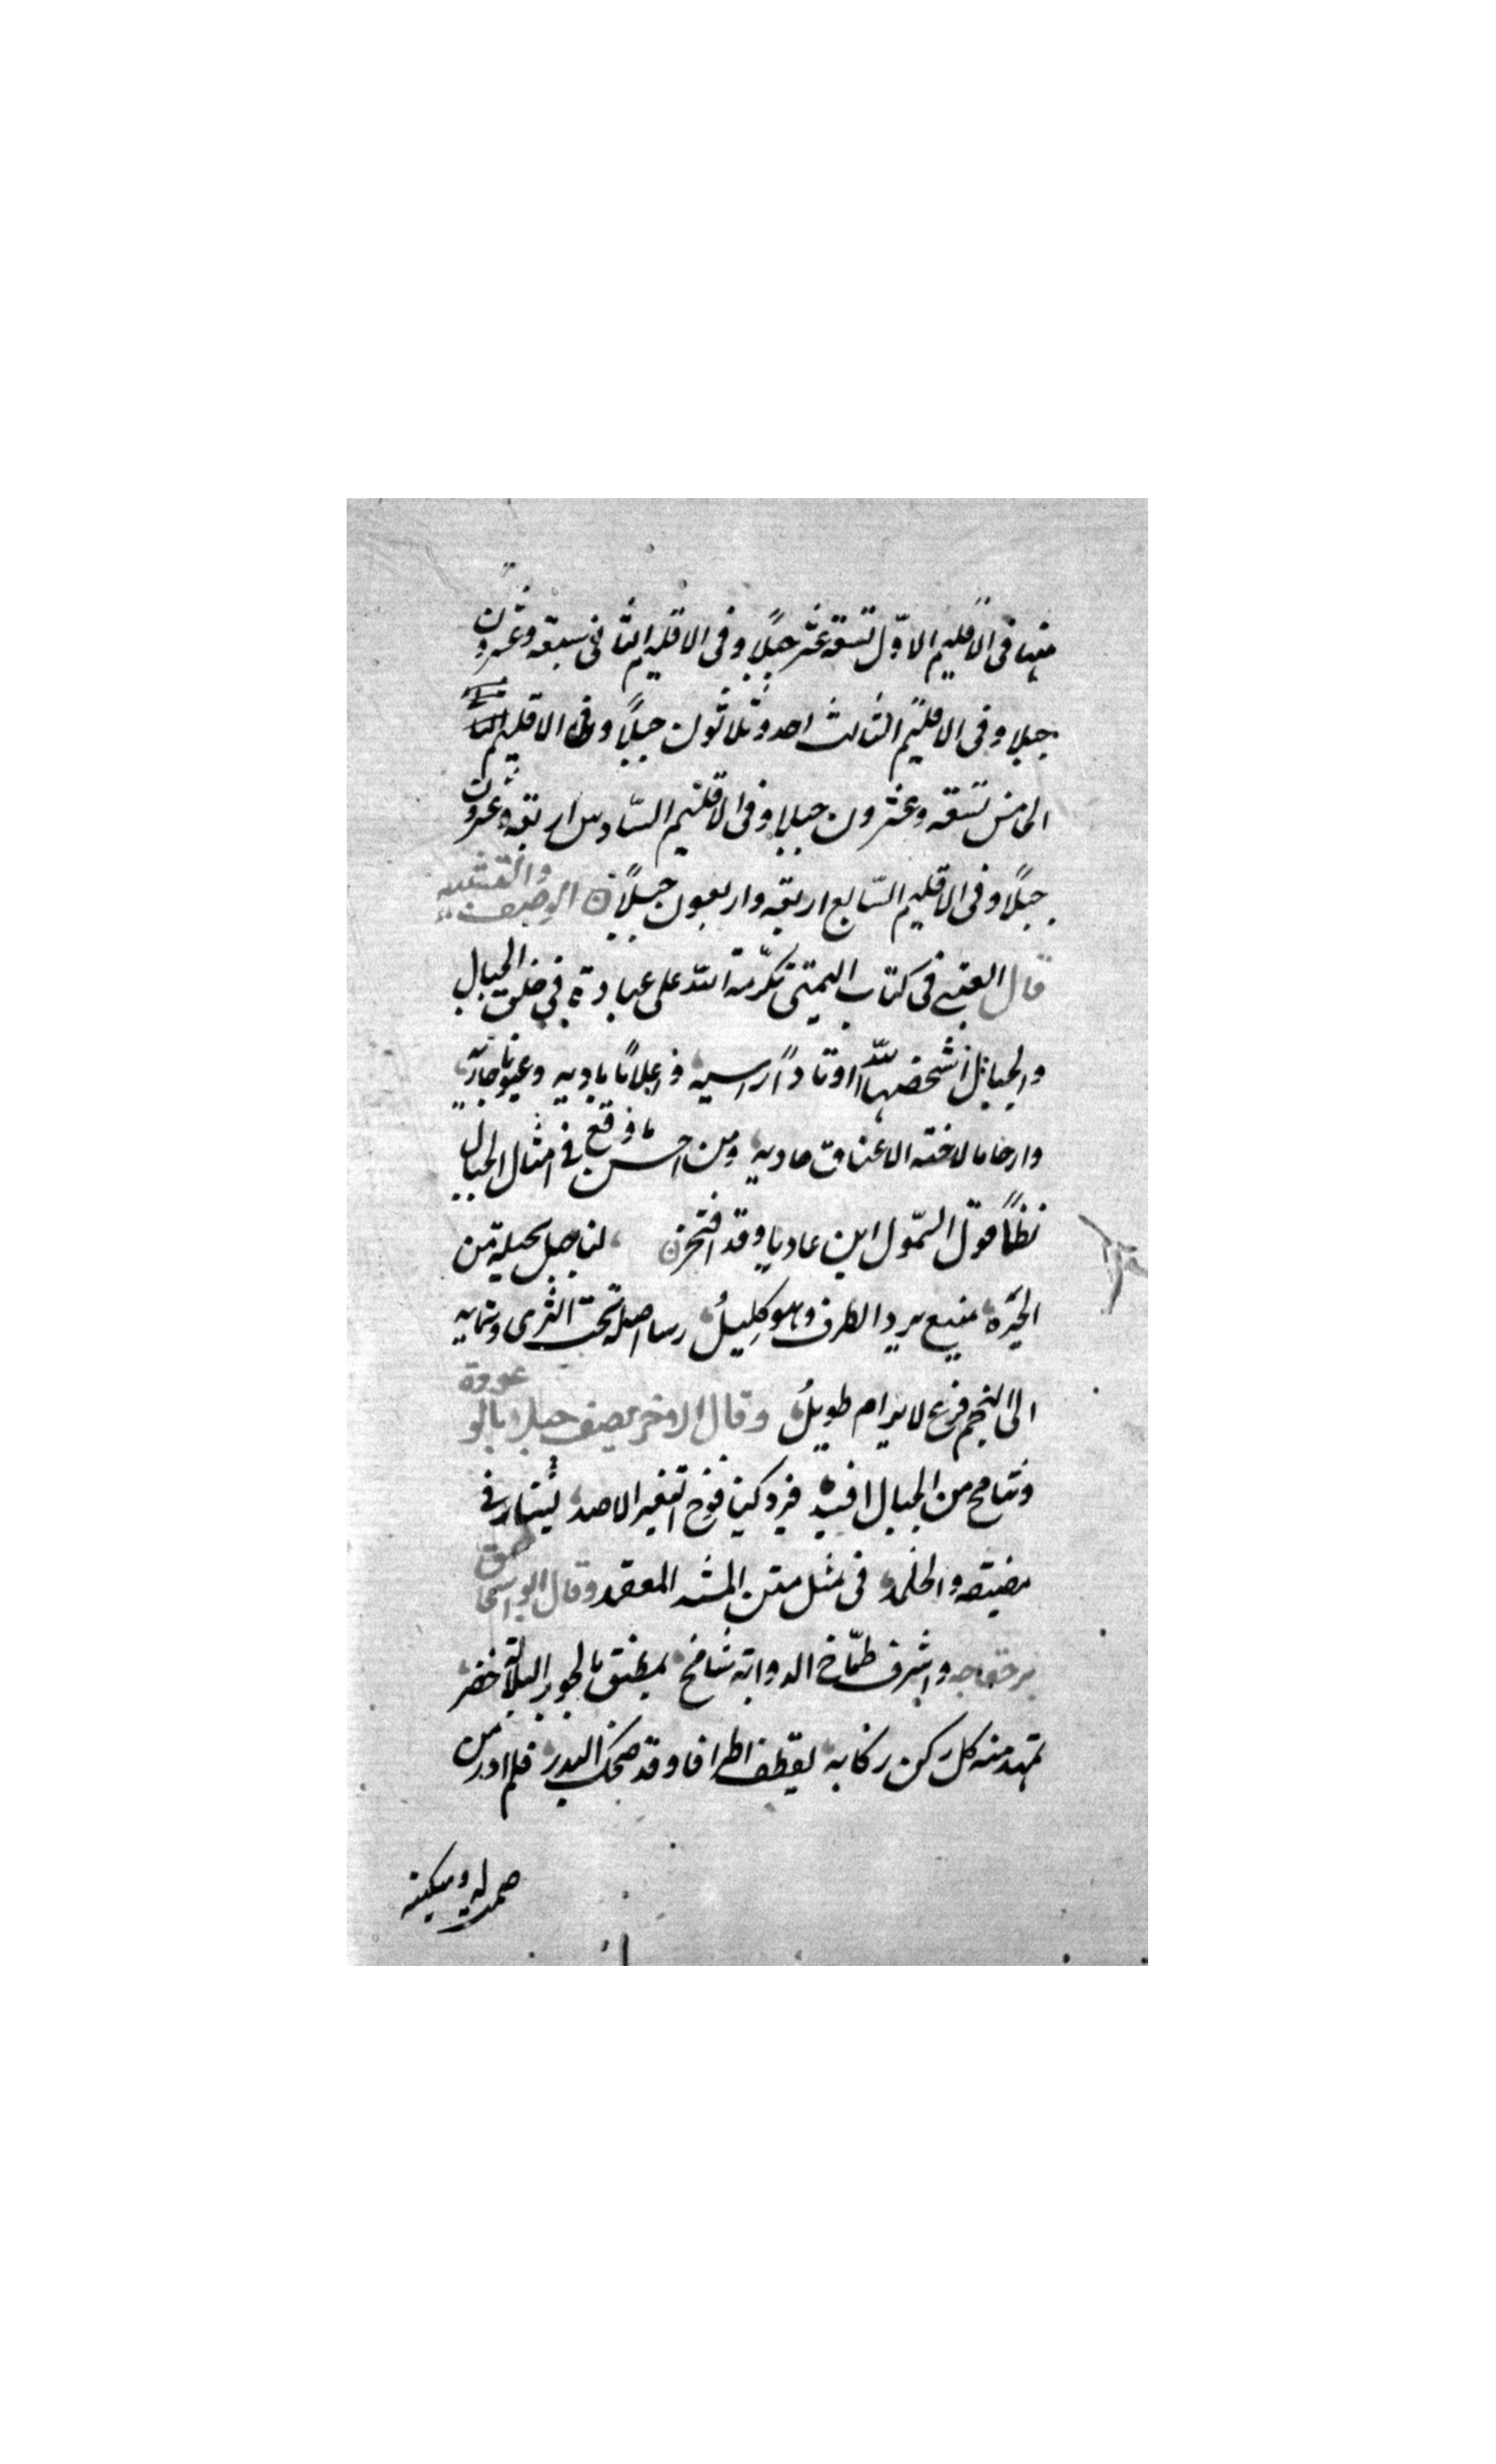 منها فى الاقليم الاوّل تسعة عشر جبلًا وفى الاقليم الثانى سبعة وعشرون
جبلا وفى الاقليم الثالث احد وثلاثون جبلًا وفى الاقليم
الخامس تسعة وعشرون جبلا وفى الاقليم السّادس اربعة وعشرون
جبلًا وفى الاقليم السّابع اربعة واربعون جبلًا الوصف والتشبيه
قال العتبى فى كتاب اليمينى تكرمة الله على عباده فى خلق الجبال
والجبال اشخصها الله اوتادًا راسيه واعلامًا باديه وعيونا جاريه
وارحاما لاخنه الاعناق صاديه ومن احسن ما وقع فى امثال الجبال
نظمًا قول السّمول ابن عاديا وقد افتخر لنا جبل يحله من
نجيره منيع يرد الطرف وهو كليلُ رسا اصله تحت الثرى وسمابه
الى النجم فرع لا يرام طويلُ وقال الاخر يصف جبلا بالوعوره
وشامخ من الجبال اقيد فرد كيافوخ البعير الاصيد يسار فى
مضيقه والجلمد فى مثل متن المسد المعقد وقال ابو اسحاق
بن خفاجه واشرف طمّاح الذوابة شامخ تمنطق بالجوزا ليلا خصر
تمهد منه كل ركن ركابه يقطف اطرافا وقد ضحك البدر فلم ادر من
صمد له وسكينه